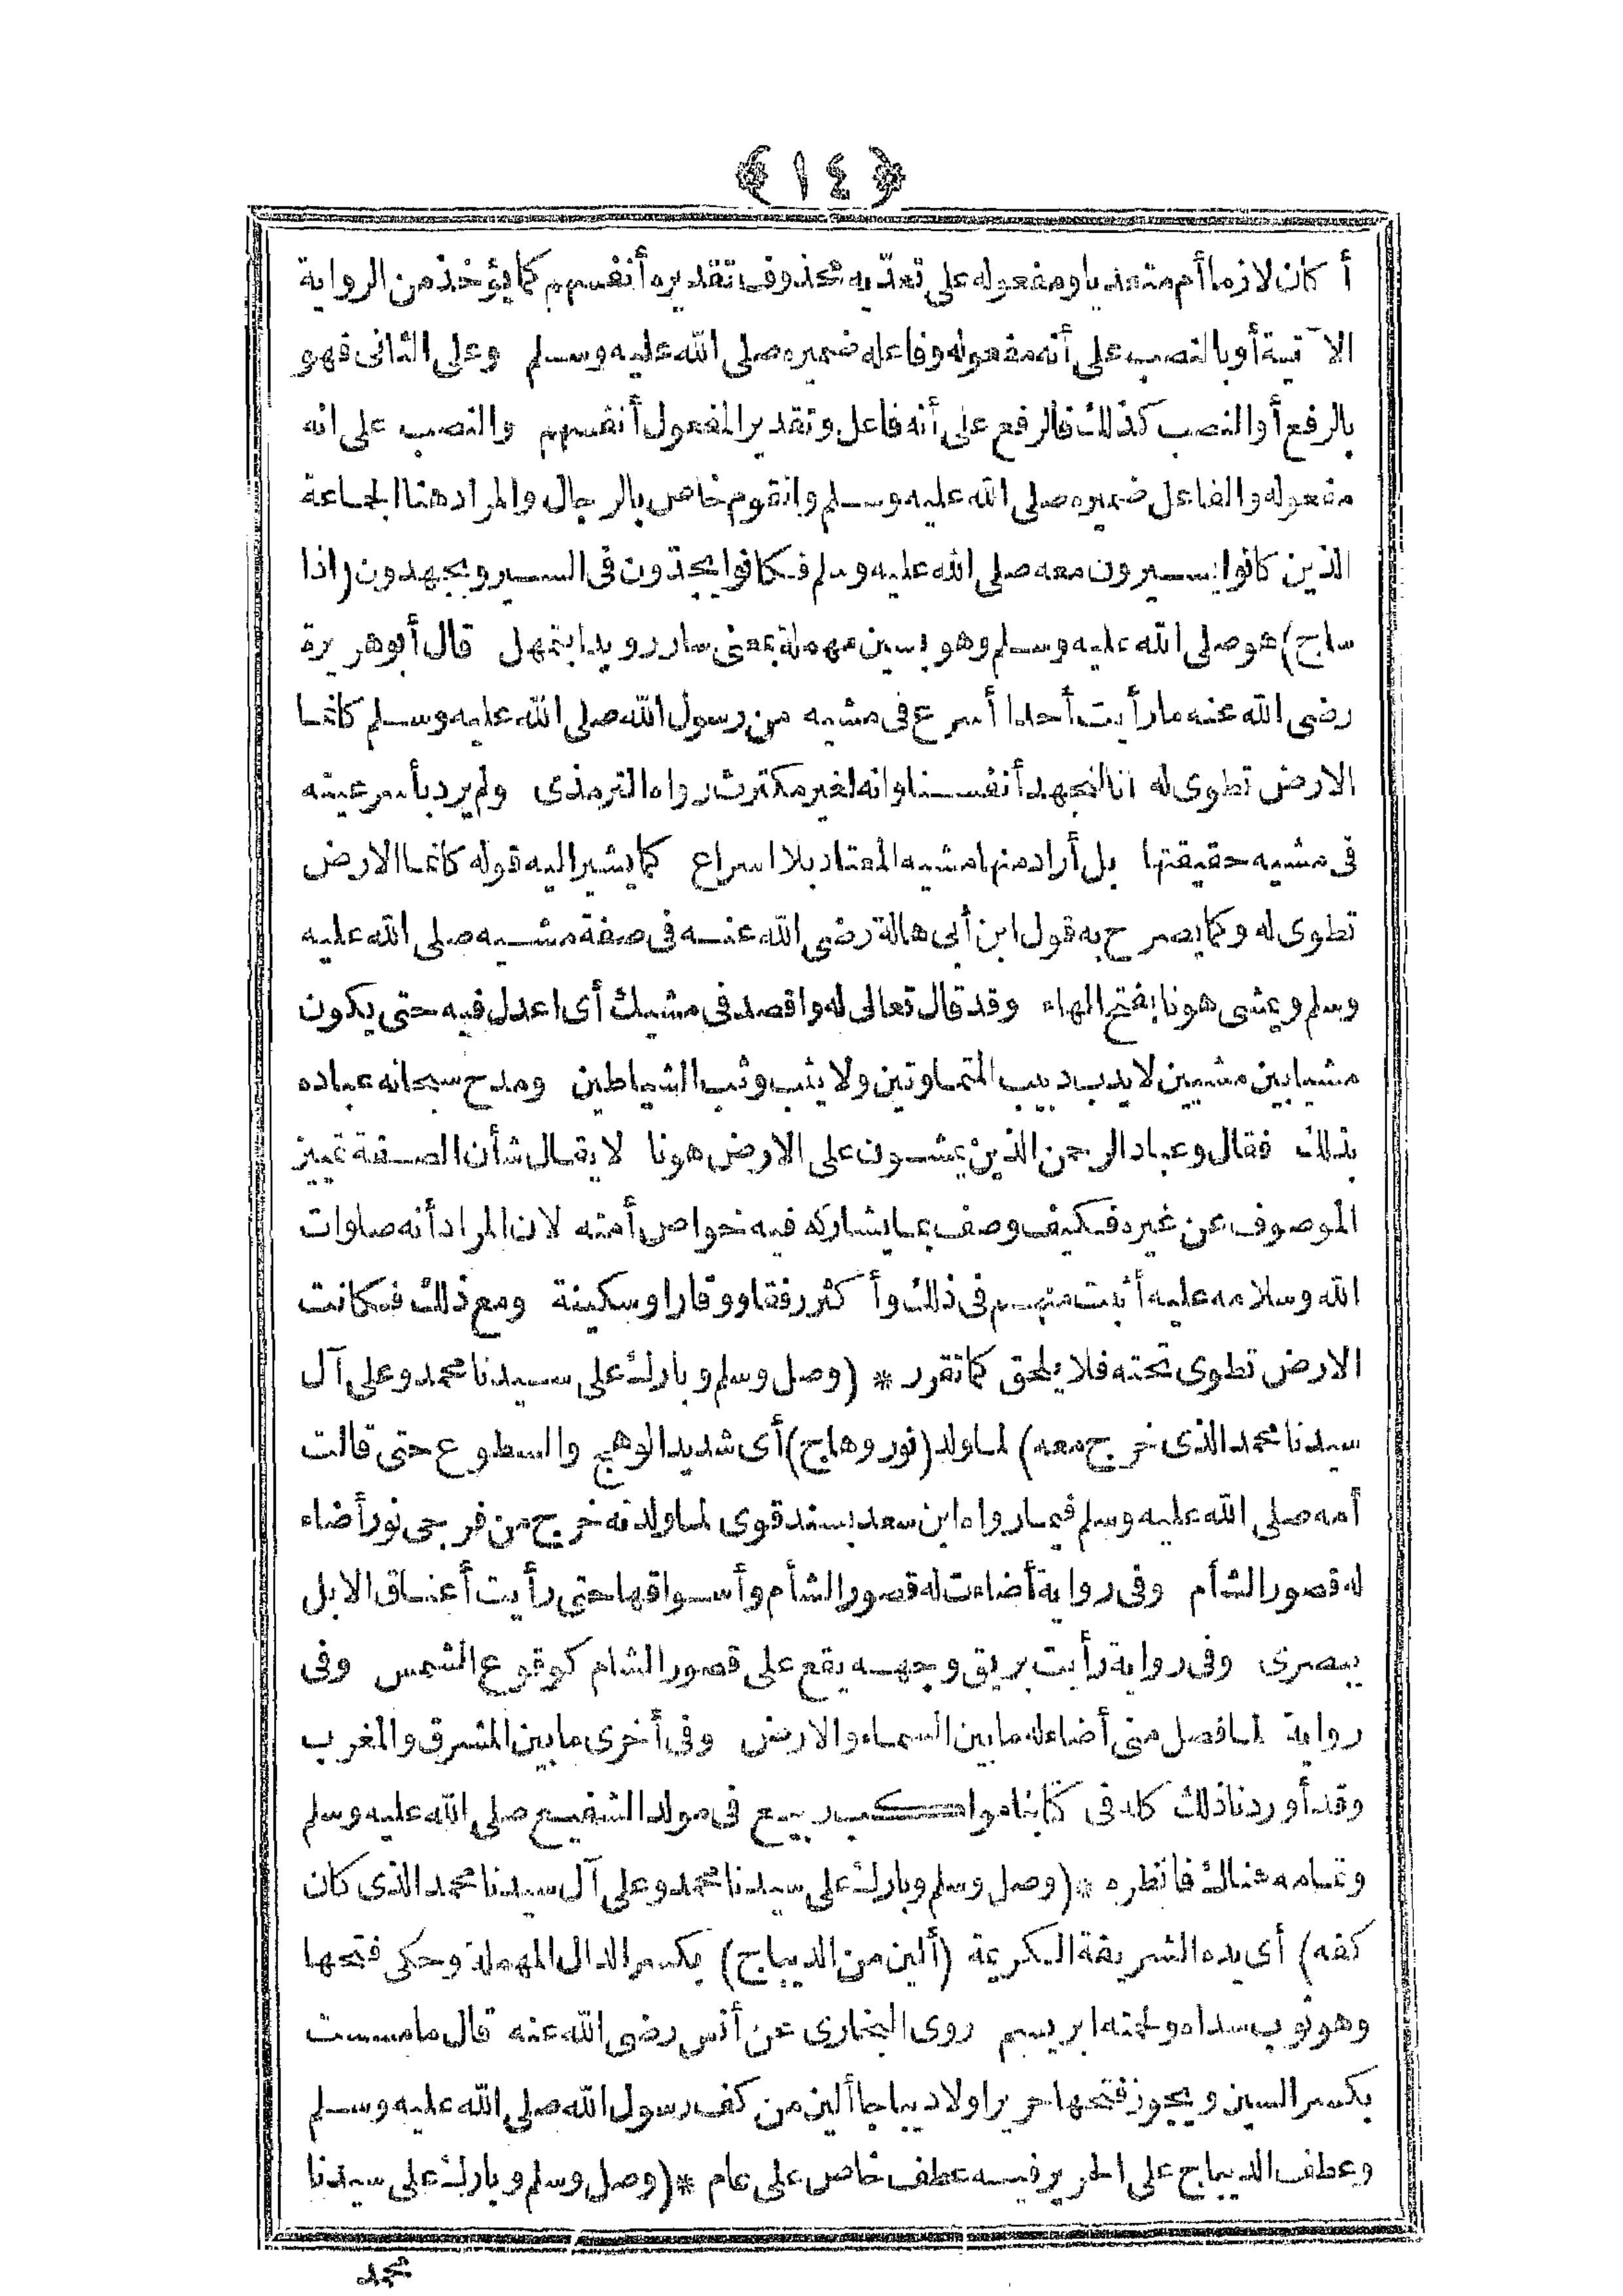 ﴿ ١٤ ﴾
أ كان لازما أم متعديا ومفعوله على تعدّيه محذوف تقديره أنفسهم كما يؤخذ من الرواية
الآتية أو بالنصب على أنه مفعوله وفاعله ضميره صلى الله عليه وسلم وعلى الثانى فهو
بالرفع أو النصب كذلك فالرفع على أنه فاعل وتقدير المفعول أنفسهم والنصب على انه
مفعوله والفاعل ضميره صلى الله عليه وسلم والقوم خاص بالرجال والمراد هنا الجماعة
الذين كانوا يسيرون معه صلى الله عليه وسلم فكانوا يجدّون فى السير ويجهدون (اذا
ساج) هو صلى الله عليه وسلم وهو بسين مهملة بمعنى سار رويدا بتمهل قال أبو هريرة
رضى الله عنه ما رأيت أحدا أسرع فى مشيه من رسول الله صلى الله عليه وسلم كانما
الارض تطوى له انا لنجهد أنفسنا وانه لغير مكترث رواه الترمذى ولم يرد بأسرعيته
فى مشيه حقيقتها بل أراد منها مشيه المعتاد بلا اسراع كما يشير اليه قوله كانما الارض
تطوى له وكما يصرح به قول ابن أبى هالة رضى الله عنه فى صفة مشيه صلى الله عليه
وسلم ويمشى هونا بفتح الهاء وقد قال تعالى له واقصد فى مشيك أى اعدل فيه حتى يكون
مشيا بين مشيين لا يدب دبيب المتماوتين ولا يثب وثب الشياطين ومدح سبحانه عباده
بذلك فقال وعباد الرحمن الذين يمشون على الارض هونا لا يقال شأن الصفة تمييز
الموصوف عن غيره فكيف وصف بما يشاركه فيه خواص أمته لان المراد أنه صلوات
الله وسلامه عليه أثبت منهم فى ذلك وأ كثر رفقا ووقارا وسكينة ومع ذلك فكانت
الارض تطوى تحته فلا يلحق كما تقرر * (وصل وسلم وبارك على سيدنا محمد وعلى آل
سيدنا محمد الذى خرج معه) لما ولد (نور وهاج) أى شديد الوهج والسطوع حتى قالت
أمه صلى الله عليه وسلم فيما رواه ابن سعد بسند قوى لما ولدته خرج من فرجى نور أضاء
له قصور الشأم وفى رواية أضاءت له قصور الشأم وأسواقها حتى رأيت أعناق الابل
ببصرى وفى رواية رأيت بريق وجهه يقع على قصور الشام كوقوع الشمس وفى
رواية لما فصل منى أضاء له ما بين السماء والارض وفى أخرى ما بين المشرق والمغرب
وقد أوردنا ذلك كله فى كتابنا مواكب ربيع فى مولد الشفيع صلى الله عليه وسلم
وتمامه هناك فانظره * (وصل وسلم وبارك على سيدنا محمد وعلى آل سيدنا محمد الذى كان
كفه) أى يده الشريفة الكريمة (ألين من الديباج) بكسر الدال المهملة وحكى فتحها
وهو ثوب سداه ولحمته ابريسم روى البخارى عن أنس رضى الله عنه قال ما مسست
بكسر السين ويجوز فتحها حريرا ولا ديباجا ألين من كف رسول الله صلى الله عليه وسلم
وعطف الديباج على الحرير فيه عطف خاص على عام * (وصل وسلم وبارك على سيدنا
محمد